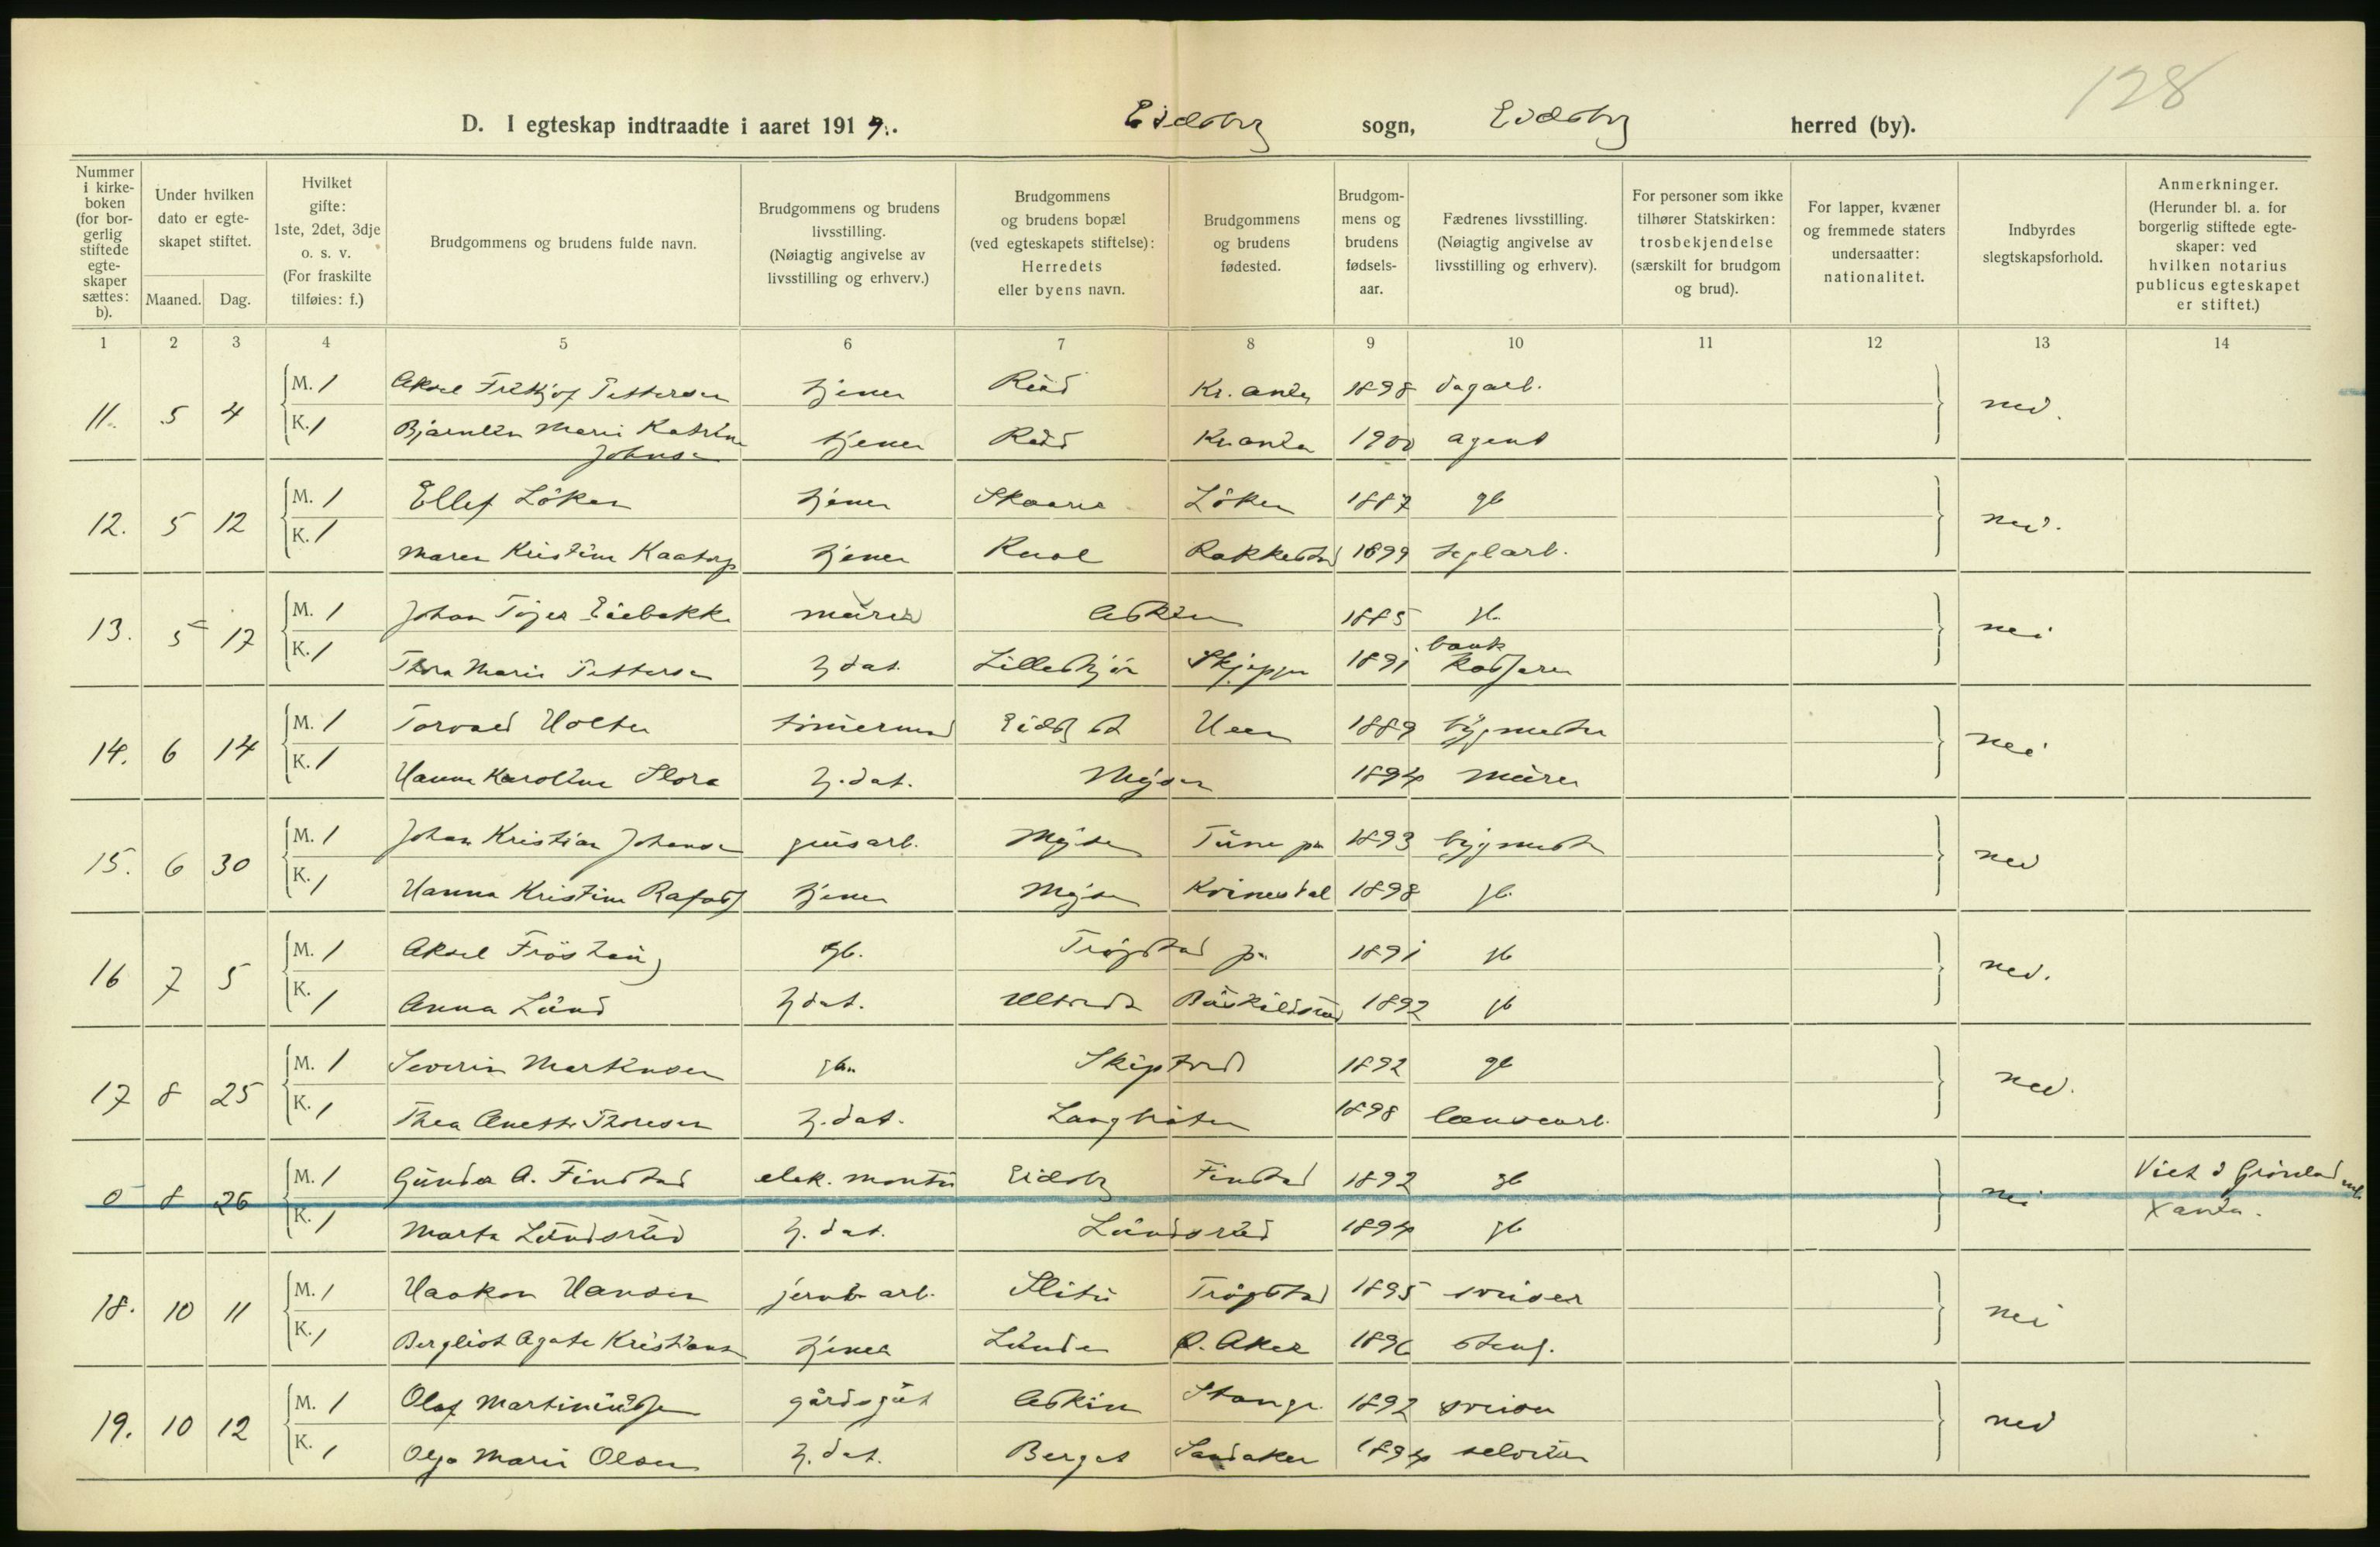 128
D. I egteskap indtraadte i aaret 1919. Eidsberg sogn, Eidsberg herred (by).
Nummer i kirkeboken (for borgerlig stiftede egteskaper sættes: b).
Under hvilken dato er egteskapet stiftet.
Maaned. Dag.
Hvilket gifte: 1ste, 2det, 3dje o. s. v. (For fraskilte tilføies: f.)
Brudgommens og brudens fulde navn.
Brudgommens og brudens livsstilling. (Nøiagtig angivelse av livsstilling og erhverv.)
Brudgommens og brudens bopæl (ved egteskapets stiftelse): Herredets eller byens navn.
Brudgommens og brudens fødested.
Brudgommens og brudens fødselsaar.
Fædrenes livsstilling. (Nøiagtig angivelse av livsstilling og erhverv).
For personer som ikke tilhører Statskirken: trosbekjendelse (særskilt for brudgom og brud).
For lapper, kvæner og fremmede staters undersaatter: nationalitet.
Indbyrdes slegtskapsforhold.
Anmerkninger. (Herunder bl. a. for borgerlig stiftede egteskaper: ved hvilken notarius publicus egteskapet er stiftet.)
1 2 3 4 5 6 7 8 9 10 11 12 13 14
11. 5 4 M. 1 Aksel Fritjof Pettersen tjener Kr.ania 1898 dagarb. nei.
K. 1 Bjarnlin Marie Katrine Johnsen tjener Kr.ania 1900 agent
12. 5 12 M. 1 Ellef Löken tjener Löken 1887 gb nei.
K. 1 Maren Kristine Kaatorp tjener Rakkestad 1899 teglarb.
13. 5 17 M. 1 Johan Eiebakke murer Askim 1885 gb. nei
K. 1 Thora Marie Pettersen h dat. 1891 bank kasserer
14. 6 14 M. 1 Torvald Holter timermand 1889 bygmester nei
K. 1 Hanna Karoline Slora h. dat. Mysen 1894 murer
15. 6 30 M. 1 Johan Kristian Johansen grusarb. Mysen Tune 1893 bygmest nei
K. 1 Hanna Kristine tjener Mysen Kvinesdal 1898 gb.
16 7 5 M. 1 Aksel Fröshaug gb. Trøgstad 1891 gb nei.
K. 1 Anna Lund h dat. 1892 gb
17 8 25 M. 1 Severin Markusen gbr. Skiptvedt 1892 gb nei.
K. 1 Thea Anette Thoresen h. dat. 1898 lænsearb.
0 8 26 M. 1 Gunder A. Finstad elek. montør Eidsbg Finstad 1892 gb nei Viet i Grönland
K. 1 Marta Lundsrud h. dat. Lundsrud 1894 gb Xania.
18. 10 11 M. 1 Haakon Hansen jernb. arb. Slitu Trøgstad 1895 sveiser nei
K. 1 Bergliot Agate Kristians tjener Ø. Aker 1896 stenh.
19. 10 12 M. 1 Olaf Martiniussen gårdsgut Askim Stange 1892 sveiser nei
K. 1 Olga Marie Olsen h. dat. Berget Sandaker 1894 selveier